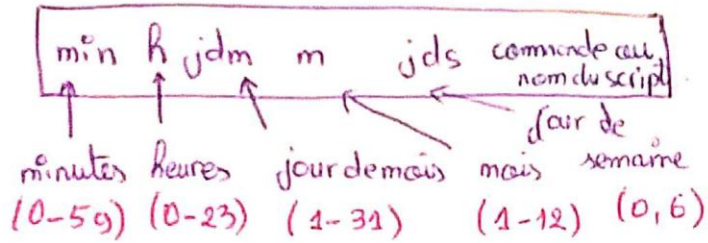 min h jdm m jds commande ou
nom du script
jour de
minutes heures jour de mois mois semaine
(0-59) (0-23) (1-31) (1-12) (0,6)